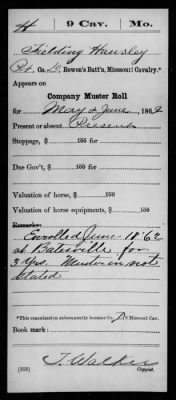 H | 9 Cav. | Mo.
Shelding Hansley
Pt. Co. D, Bowen's Batt'n, Missouri Cavalry.*
Appears on
Company Muster Roll
for May & June, 1862
Present or absent Present
Stoppage, $ 100 for
Due Gov't, $ 100 for
Valuation of horse, $ 100
Valuation of horse equipments, $ 100
Remarks:
Enrolled June 18 '62
at Batesville for
3 yrs. Muster in not
stated
*This organization subsequently became Co. D, 9 Missouri Cav.
Book mark:
T. Walker
(358) Copyist.